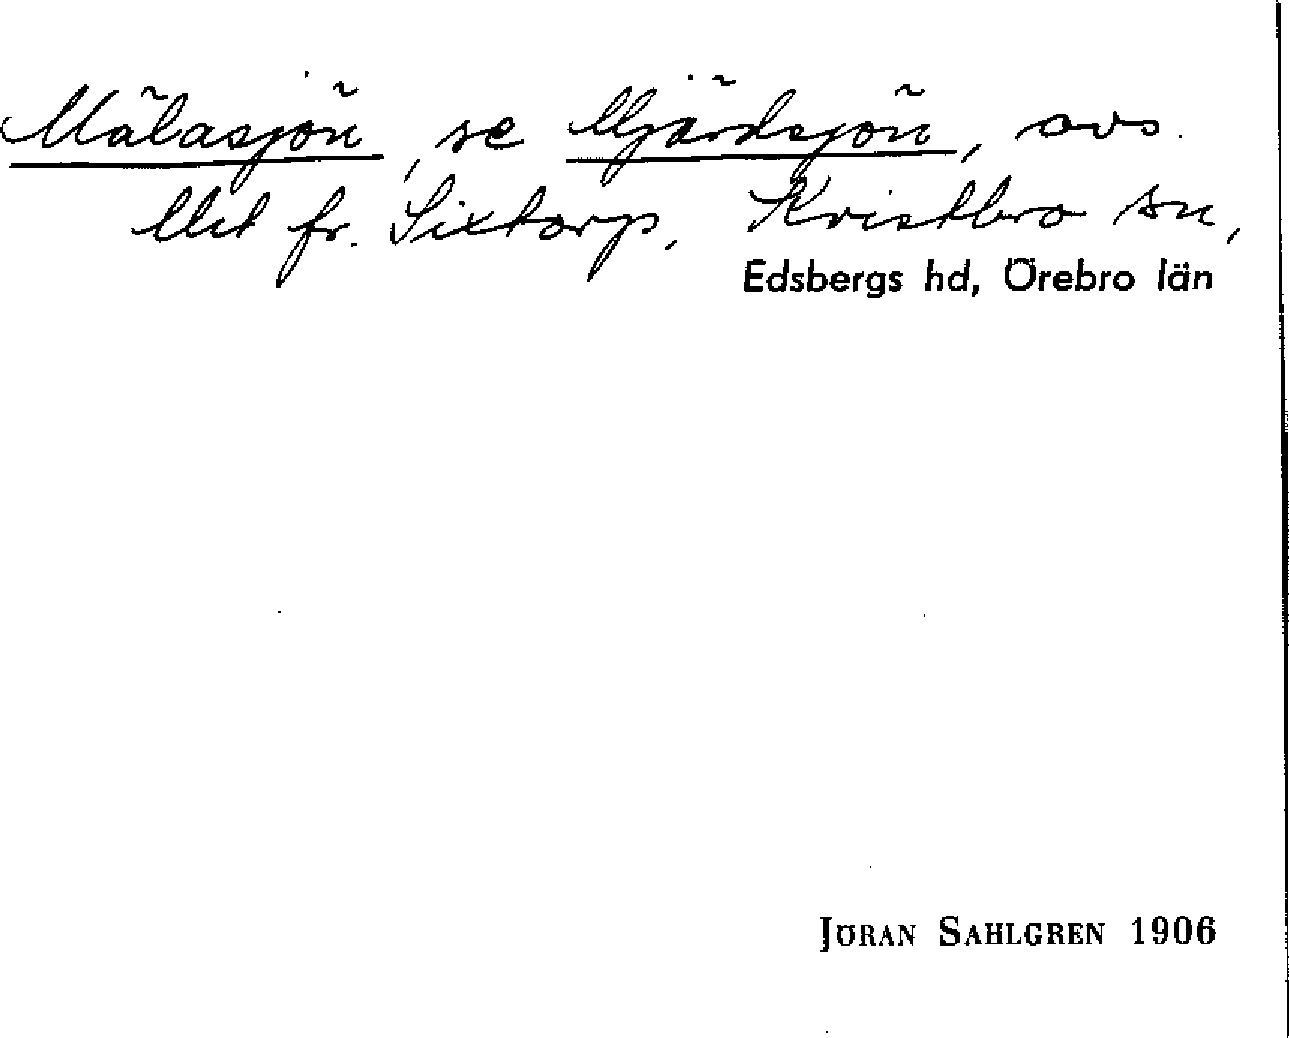 Mälasjön, se Mjärdsjön, avs.
Utl fr. Sixtorp, Kvistbro sn,
Edsbergs hd, Örebro län
JÖRAN SAHLGREN 1906